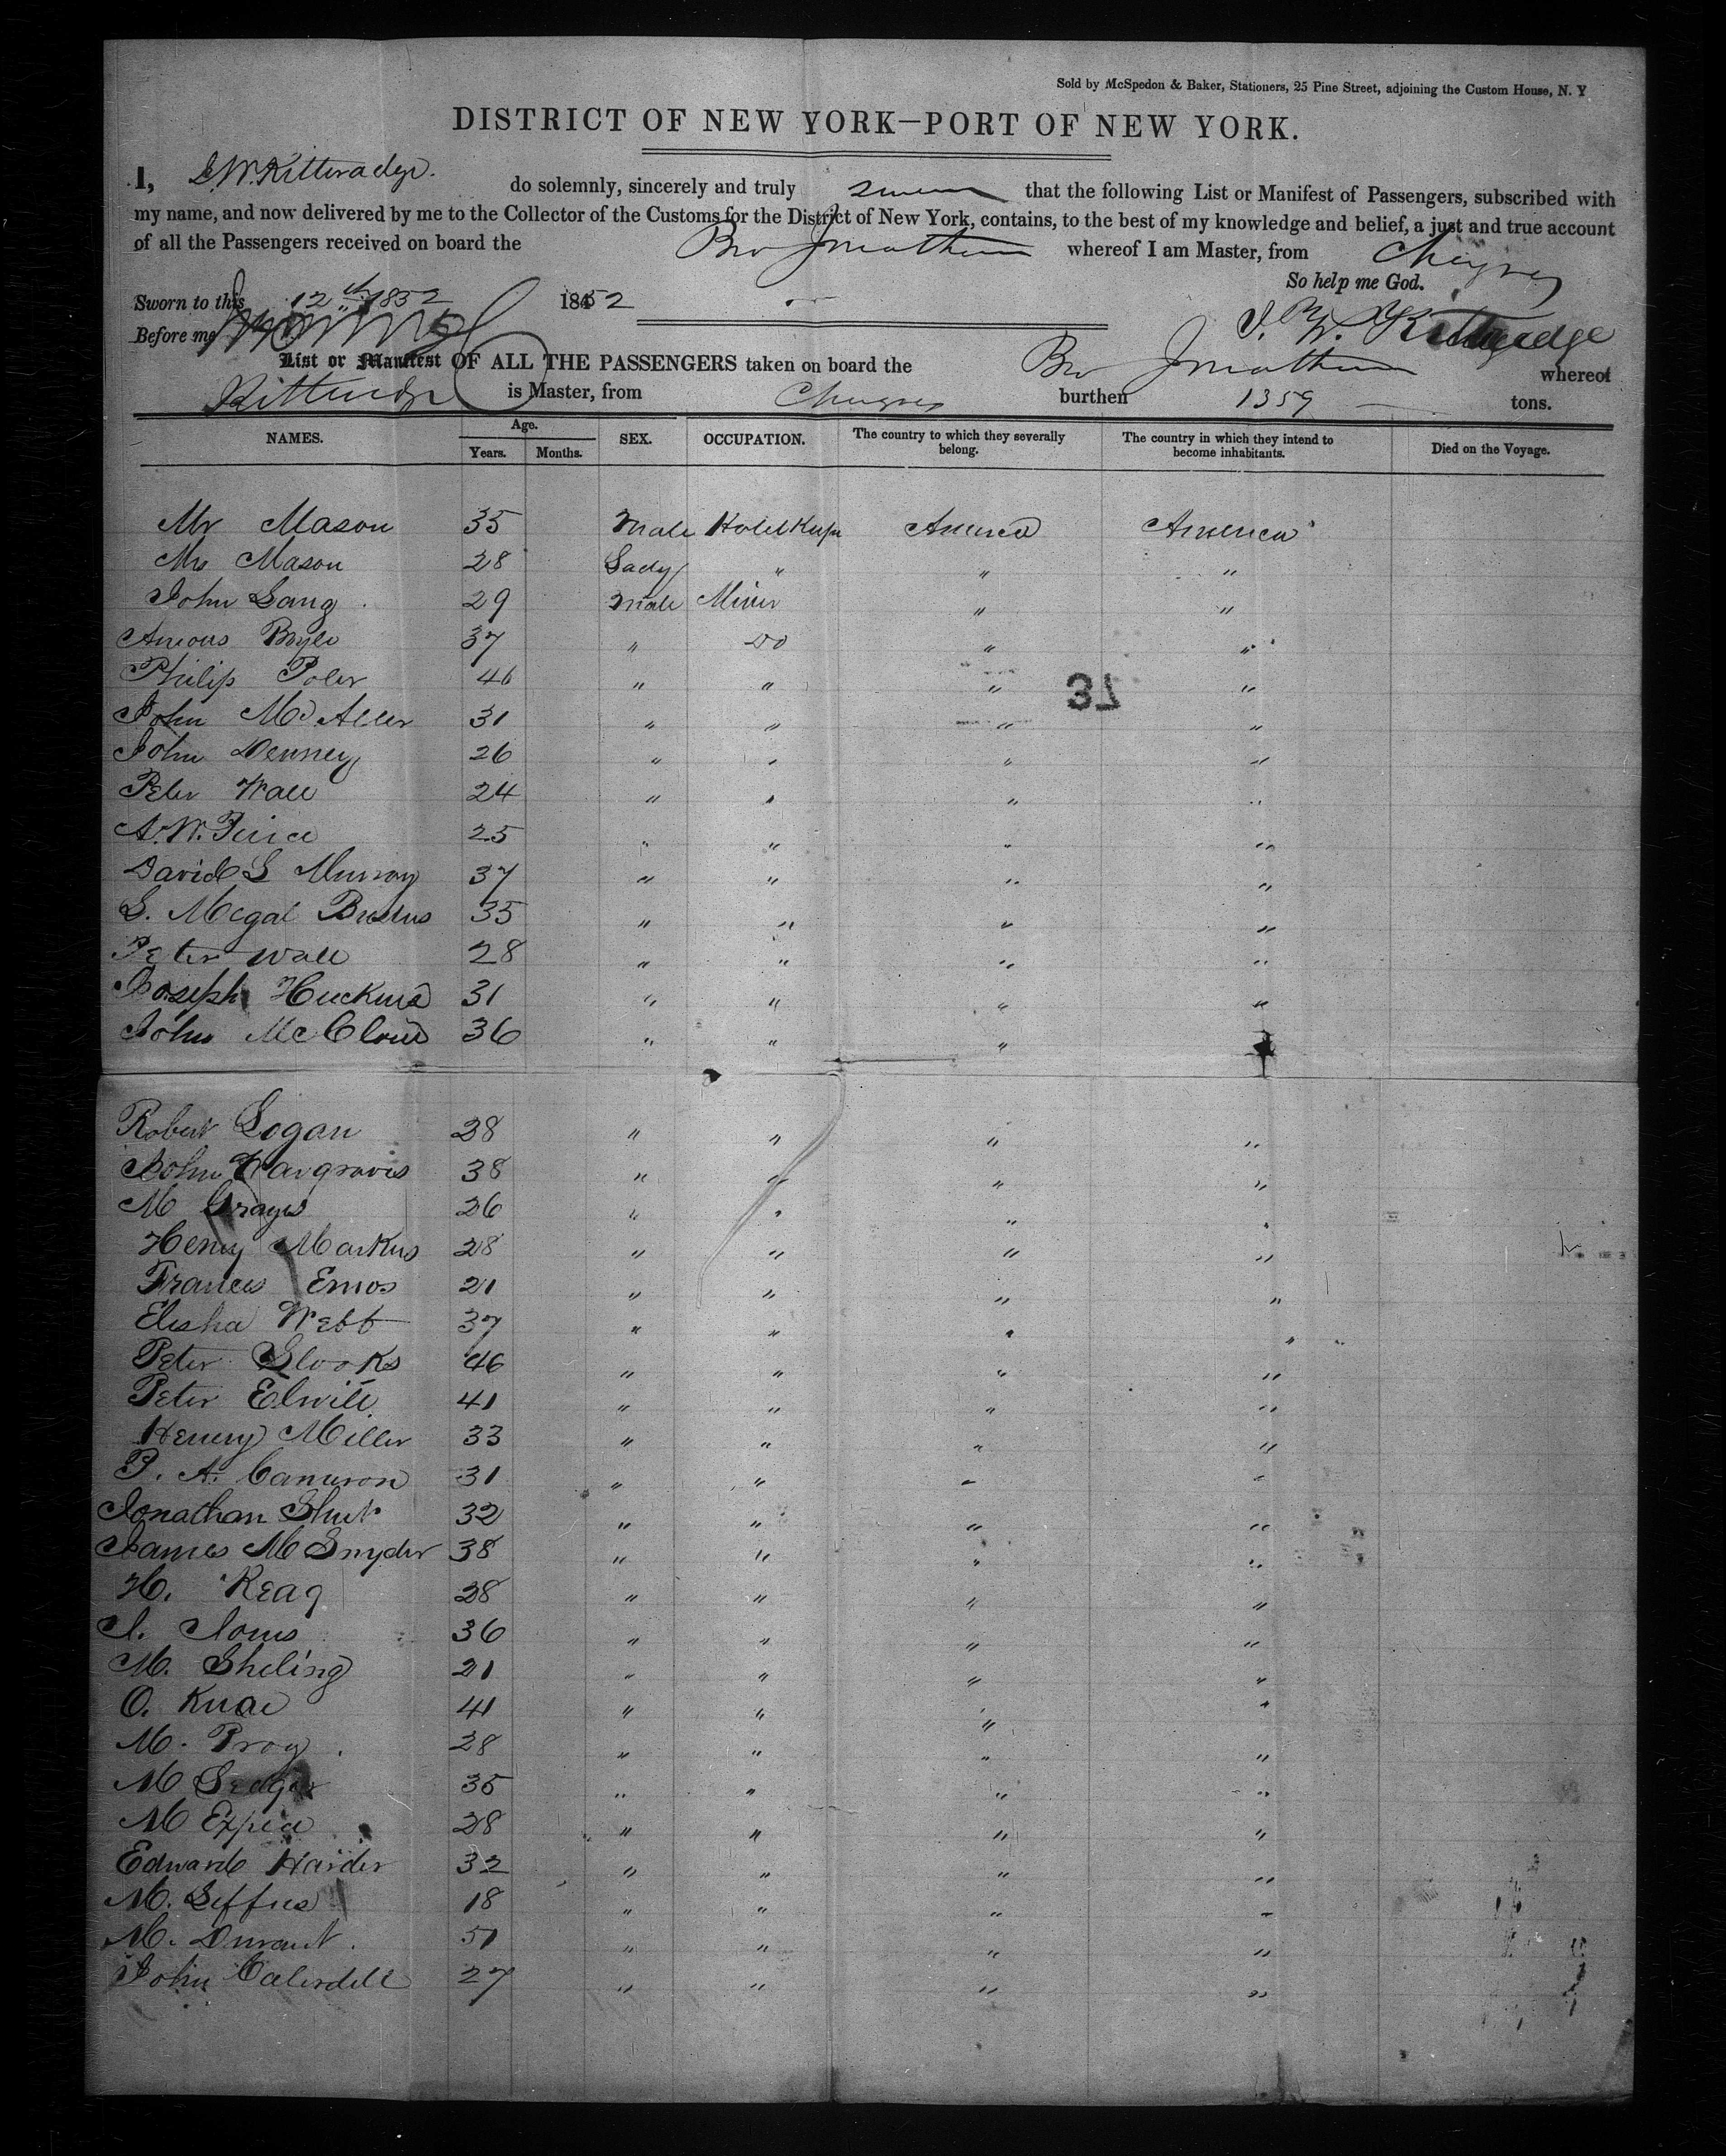 Sold by McSpedon & Baker, Stationers, 25 Pine Street, adjoining the Custom House, N. Y
DISTRICT OF NEW YORK—PORT OF NEW YORK.
I, do solemnly, sincerely and truly swear that the following List or Manifest of Passengers, subscribed with
my name, and now delivered by me to the Collector of the Customs for the District of New York, contains, to the best of my knowledge and belief, a just and true account
of all the Passengers received on board the Bro Jonathan whereof I am Master, from Chagres
So help me God.
Sworn to this 12th 1852 1852
Before me
List or Manifest OF ALL THE PASSENGERS taken on board the Bro Jonathan whereof
Kittredge is Master, from Chagres burthen 1359 tons.
NAMES. Age. Years. Months. SEX. OCCUPATION. The country to which they severally belong. The country in which they intend to become inhabitants. Died on the Voyage.
Mr Mason 35 Male America America
Mrs Mason 28 Lady " " "
John Lang 29 Male Miner " "
37 " Do " "
Philip Poler 46 " " " "
31 " " " "
John Denney 26 " " " "
Peter Wall 24 " " " "
25 " " " "
David L Murray 37 " " " "
35 " " " "
Peter Wall 28 " " " "
Joseph Huckins 31 " " " "
John McCloud 36 " " "
Robert Logan 28 " " " "
John Hargraves 38 " " " "
M Grays 26 " " " "
Henry Markus 28 " " " "
Frances Emos 21 " " " "
Elisha Webb 37 " " " "
Peter Slooks 46 " " " "
Peter Elwill 41 " " " "
Henery Miller 33 " " " "
P. A. Cameron 31 " " " "
Jonathan Shut 32 " " " "
James M Snyder 38 " " " "
H. Reag 28 " " " "
36 " " " "
M. Sheling 21 " " " "
O. 41 " " " "
M. Troy 28 " " " "
M 35 " " " "
M 28 " " " "
Edward Harder 32 " " " "
M. 18 " " " "
M. Durant 51 " " " "
John 27 " " " "